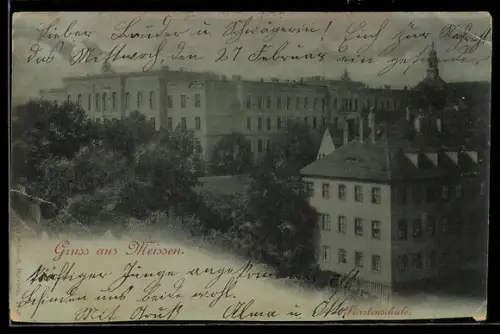 Lieber Bruder u. Schwägerin! Euch zur Nachricht
das Mittwoch, den 27 Februar ein
Gruss aus Meissen.
kräftiger Junge angekommen
befinden uns beide wohl.
Mit Gruß Alma u. Otto
Fürstenschule.